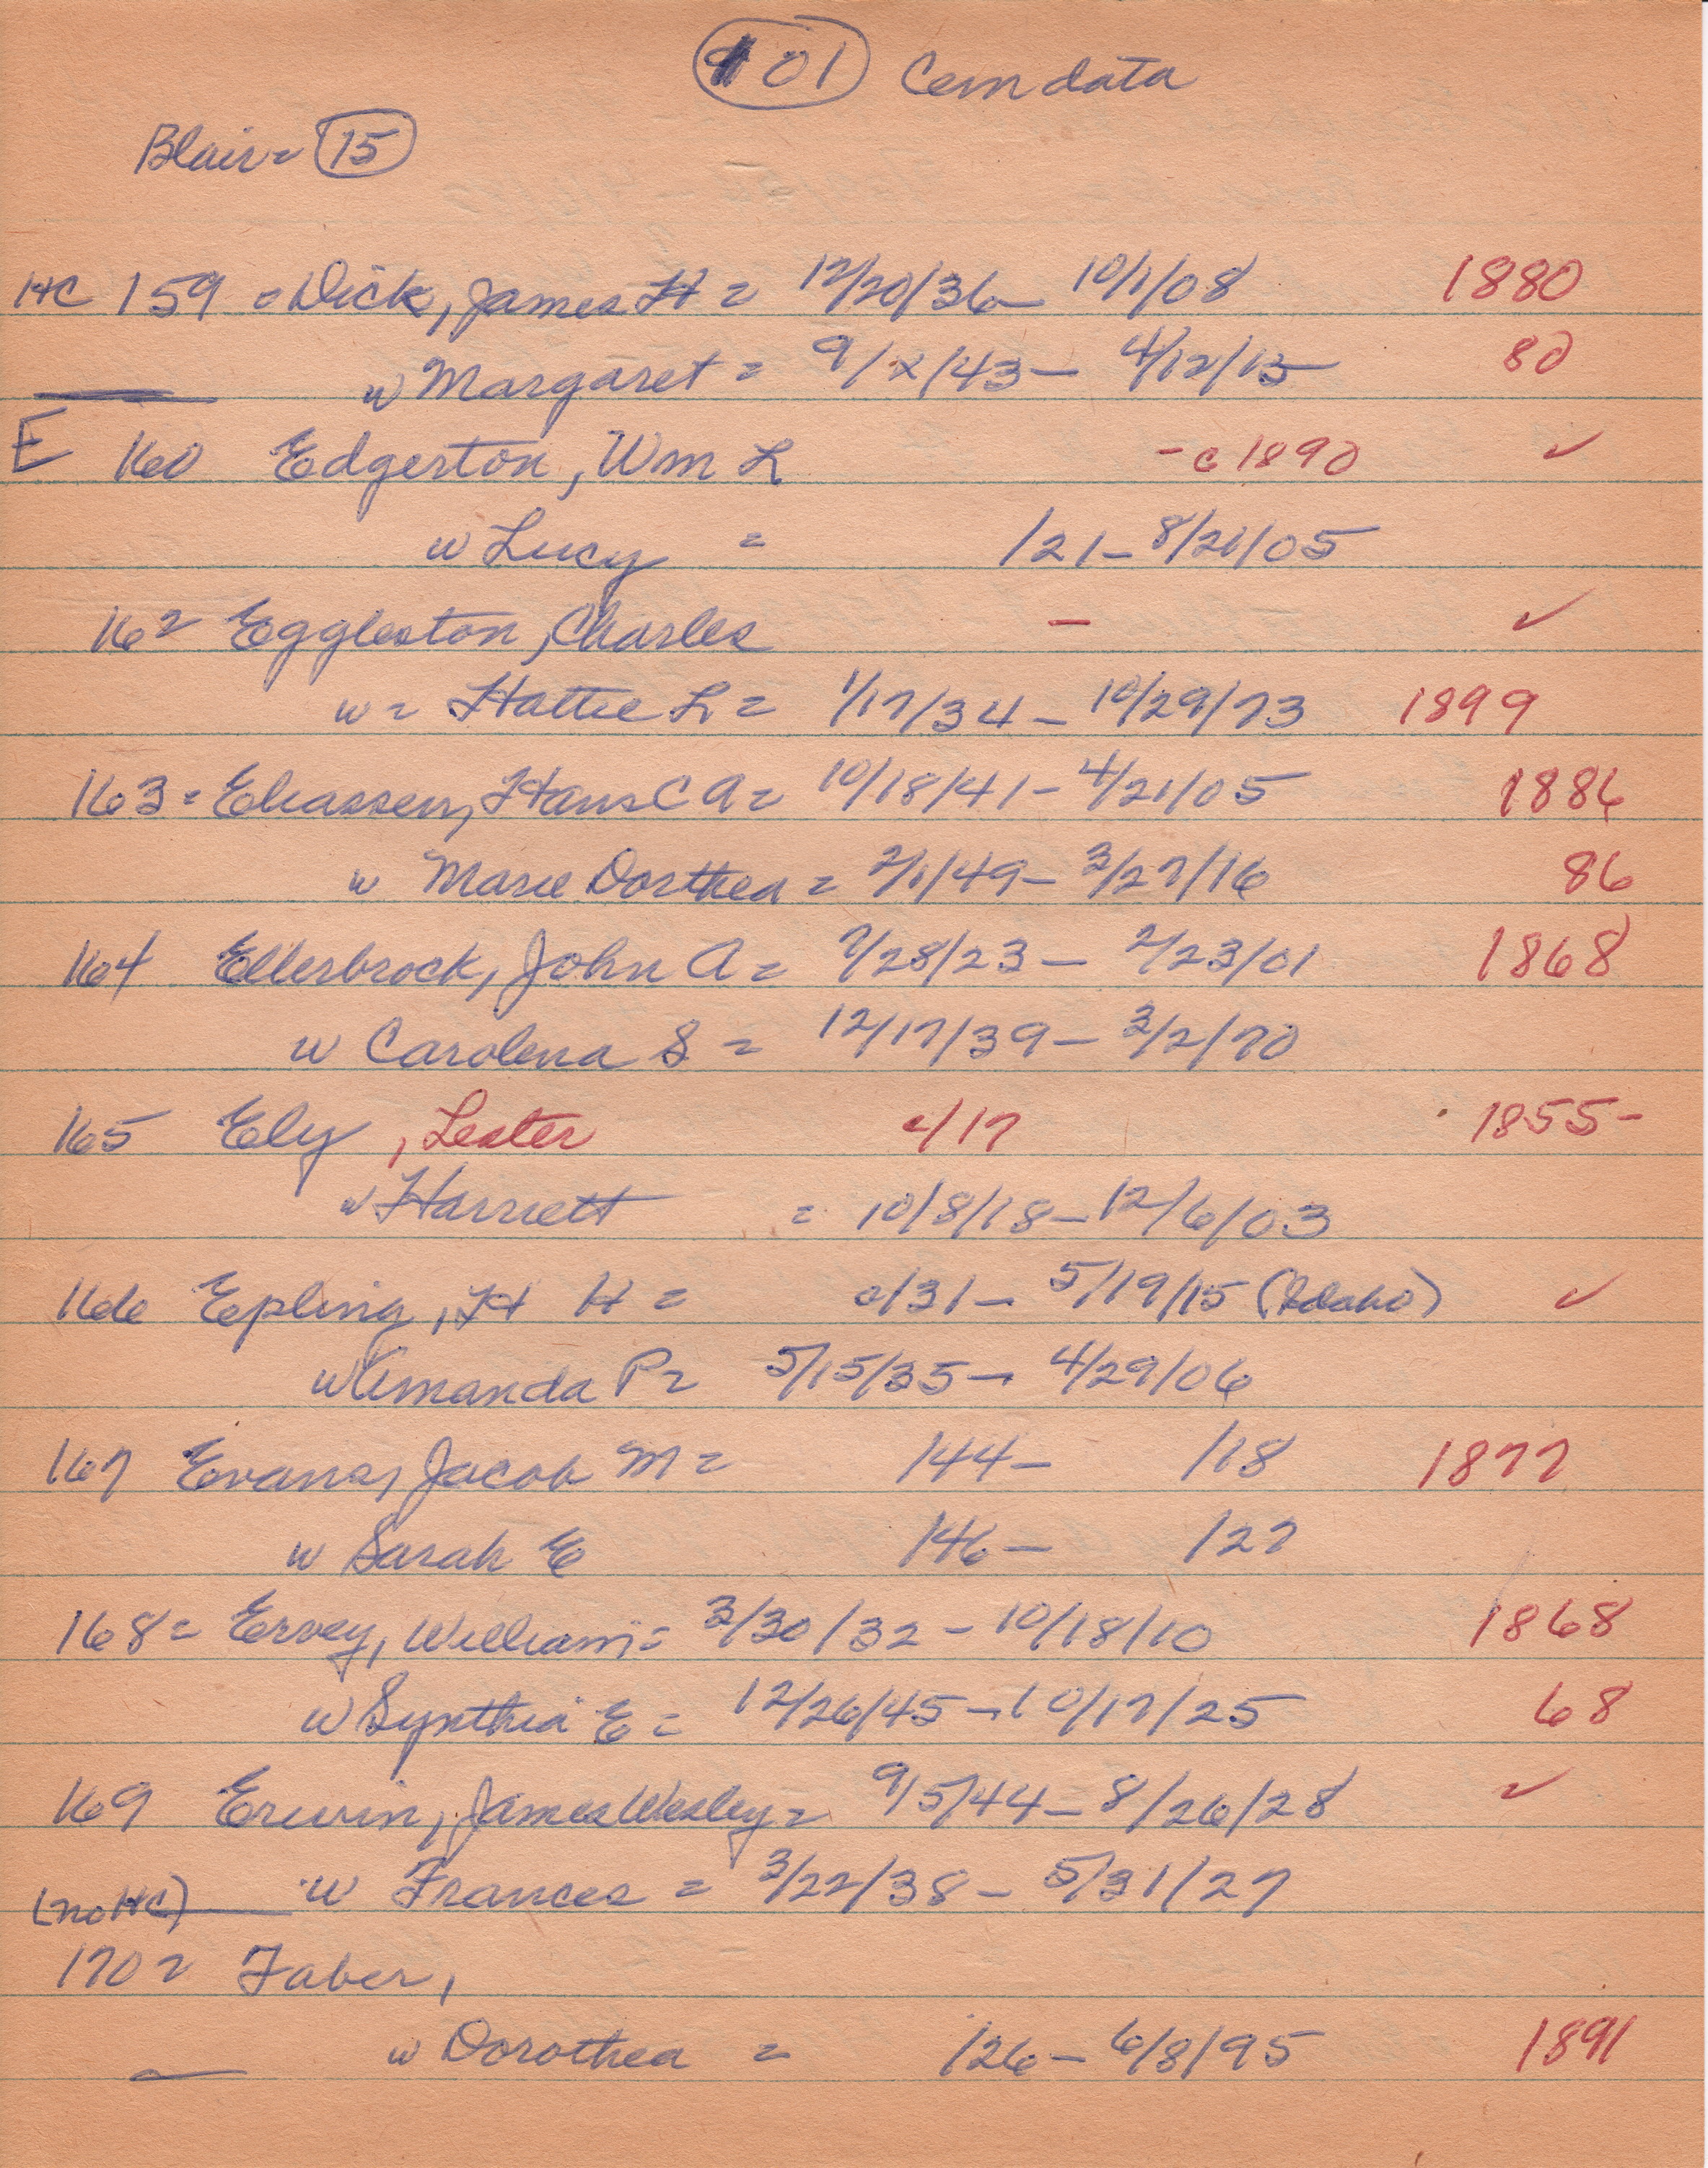 01 Cem data
Blair = 15
HC 159 = Dick, James H = 12/20/36 – 10/1/08 1880
w Margaret = 9/x/43 – 4/12/15 80
E 160 Edgerton, Wm L – c 1890 ✓
w Lucy = /21 – 8/21/05
162 Eggleston, Charles – ✓
w = Hattie L = 1/17/34 – 10/29/73 1899
163 = Eliassen, Hans C A = 10/18/41 – 4/21/05 1886
w Marie Dorthea = 2/1/49 – 3/27/16 86
164 Ellerbrock, John A = 7/28/23 – 2/23/01 1868
w Carolena S = 12/17/39 – 3/2/70
165 Ely, Lester c/17 1855 –
w Harriett = 10/8/18 – 12/6/03
166 Epling, H H = c/31 – 5/19/15 (Idaho) ✓
w Amanda P = 5/15/35 – 4/29/06
167 Evans, Jacob M = /44 – /18 1877
w Sarah E /46 – /27
168 = Ervey, William = 3/30/32 – 10/18/10 1868
w Synthia E = 12/26/45 – 10/17/25 68
169 Erwin, James Wesley = 9/5/44 – 8/26/28 ✓
(no HC) w Frances = 3/22/38 – 5/31/27
170 = Faber,
w Dorothea = /26 – 6/8/95 1891